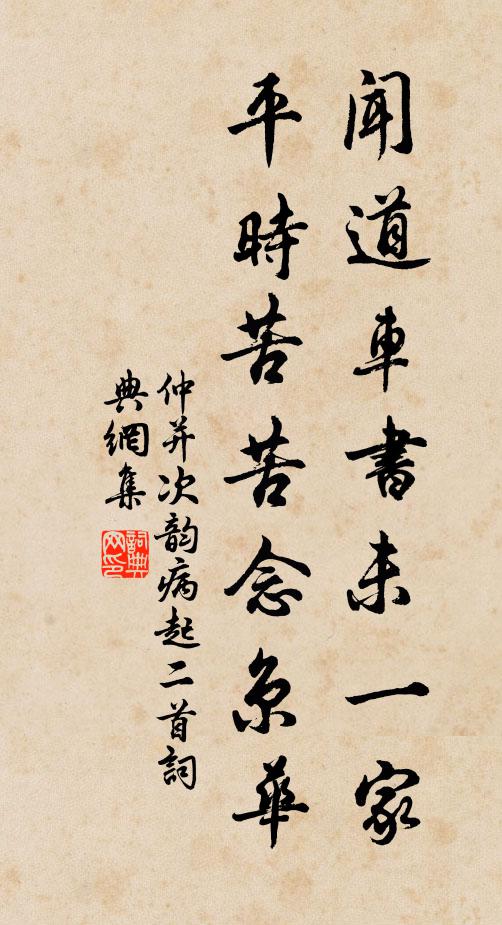 聞道車書未一家
平時苦苦念京華
仲并次韵病起二首詞
典網集
詞典网印